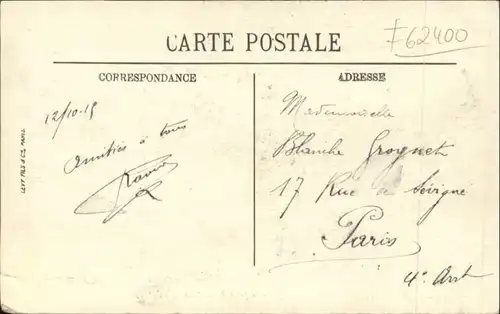 CARTE POSTALE
F62400
CORRESPONDANCE
ADRESSE
LEVY FILS & CIE, PARIS
12/10-15
Amitiés à tous
Mademoiselle
Blanche Grognet
17 Rue de Sévigné
Paris
4e Arrt